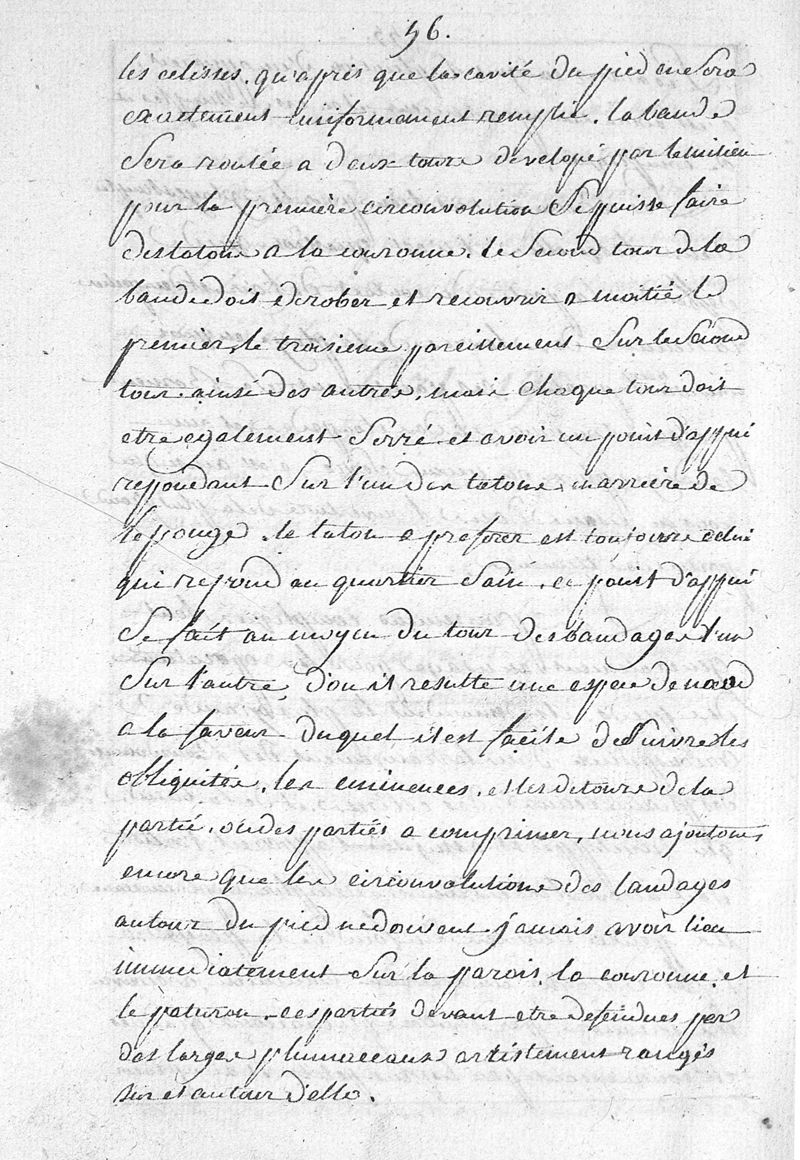 56.
les eclisses, qu'après que la cavité du pied en Sera
exactement uniformement remplie. la bande
Sera roulée a deux tours developé par le milieu
pour la première circonvolution Se puisse faire
des talons a la couronne. le Second tour de la
bande doit derober et recouvrir a moitié le
premier, le troisieme pareillement Sur le Second
tour. ainsi des autres, mais chaque tour doit
etre egalement Serré et avoir un point d'appui
repondant Sur l'un des talons, en arrière de
l'eponge. le talon a preferer est toujours celui
qui repond au quartier Sain. ce point d'appui
Se fait au moyen du tour des bandages l'un
Sur l'autre, d'ou il resulte une espece de nœud
a la faveur duquel il est facile de Suivre les
obliquités, les eminences, et les detours de la
partie, ou des parties a comprimer, nous ajoutons
encore que les circonvolutions des bandages
autour du pied ne doivent jamais avoir lieu
immediatement Sur la parois, la couronne, et
le paturon, ces parties devant etre defendues par
des larges plumaceaux artistement rangés
sur et autour d'elle.